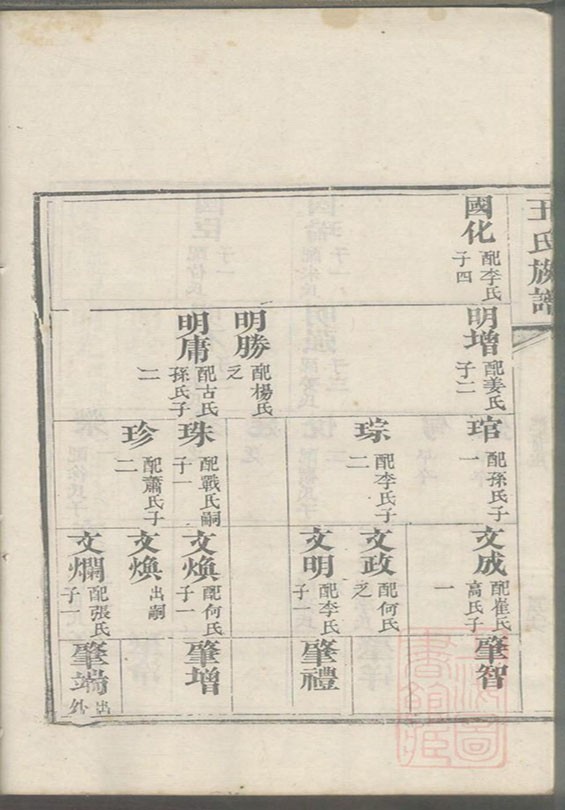 王氏族譜
國化 配李氏
子四
明增 配姜氏
子二
明勝 配楊氏
乏
明庸 配古氏
孫氏子
二
琯 配孫氏子
一
琮 配李氏子
二
珠 配戰氏嗣
子一
珍 配蕭氏子
二
文成 配崔氏
高氏子
一
文政 配何氏
乏
文明 配李氏
子一
文煥 配何氏
子一
文煥 出嗣
文爛 配張氏
子一
肇智
肇禮
肇增
肇端 出
外